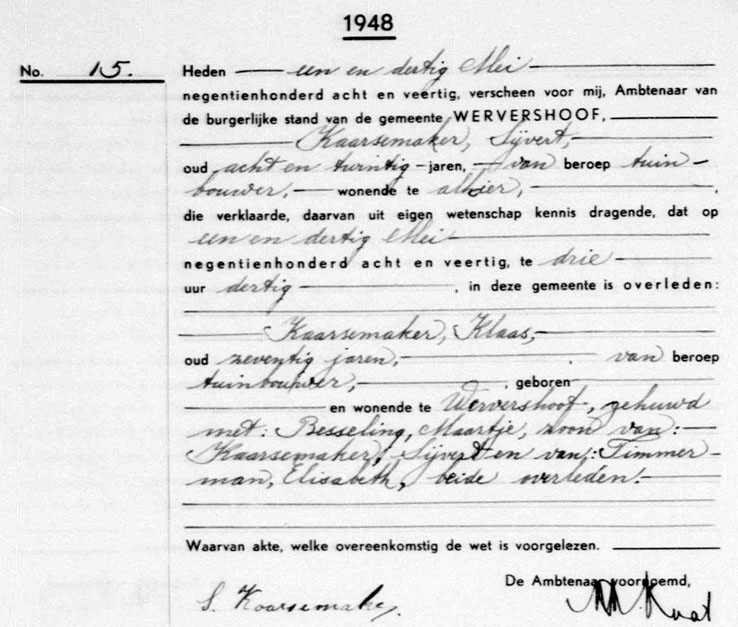 1948
No. 15. Heden een en dertig Mei
negentienhonderd acht en veertig, verscheen voor mij, Ambtenaar van
de burgerlijke stand van de gemeente WERVERSHOOF,
Kaarsemaker, Sijvert,
oud acht en twintig jaren, van beroep tuin-
bouwer, wonende te alhier,
die verklaarde, daarvan uit eigen wetenschap kennis dragende, dat op
een en dertig Mei
negentienhonderd acht en veertig, te drie
uur dertig, in deze gemeente is overleden:
Kaarsemaker, Klaas,
oud zeventig jaren, van beroep
tuinbouwer, geboren
en wonende te Wervershoof, gehuwd
met: Besseling, Maartje, zoon van:
Kaarsemaker, Sijvert en van: Timmer-
man, Elisabeth, beide overleden.
Waarvan akte, welke overeenkomstig de wet is voorgelezen.
De Ambtenaar voornoemd,
S. Kaarsemaker.